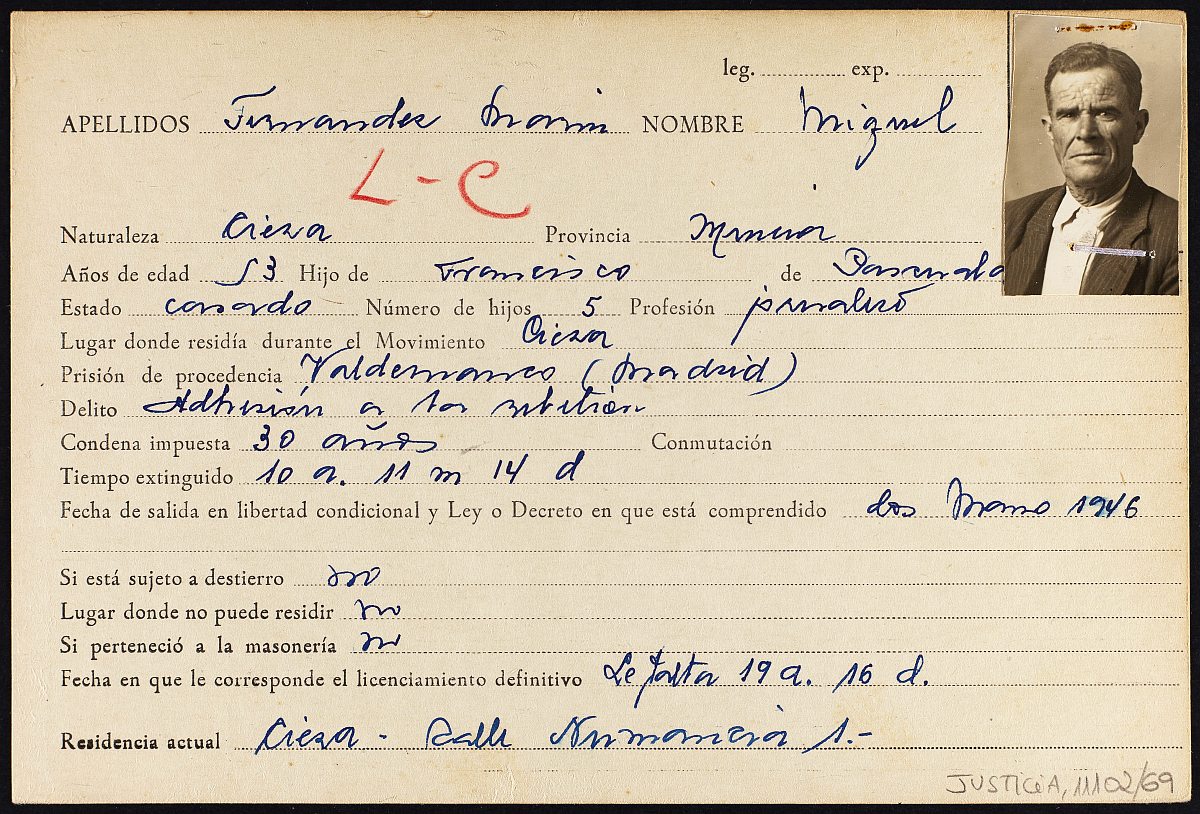 leg. exp.
APELLIDOS Fernandez Marin NOMBRE Miguel
L-C
Naturaleza Cieza Provincia Murcia
Años de edad 53 Hijo de Francisco de Pascuala
Estado casado Número de hijos 5 Profesión
Lugar donde residía durante el Movimiento Cieza
Prisión de procedencia Valdemanco (Madrid)
Delito Adhesión a la rebelión
Condena impuesta 30 años Conmutación
Tiempo extinguido 10 a. 11 m 14 d
Fecha de salida en libertad condicional y Ley o Decreto en que está comprendido dos Marzo 1946
Si está sujeto a destierro no
Lugar donde no puede residir no
Si perteneció a la masonería no
Fecha en que le corresponde el licenciamiento definitivo Le falta 19 a. 16 d.
Residencia actual Cieza - Calle Numancia 1.-
JUSTICIA, 11102/69